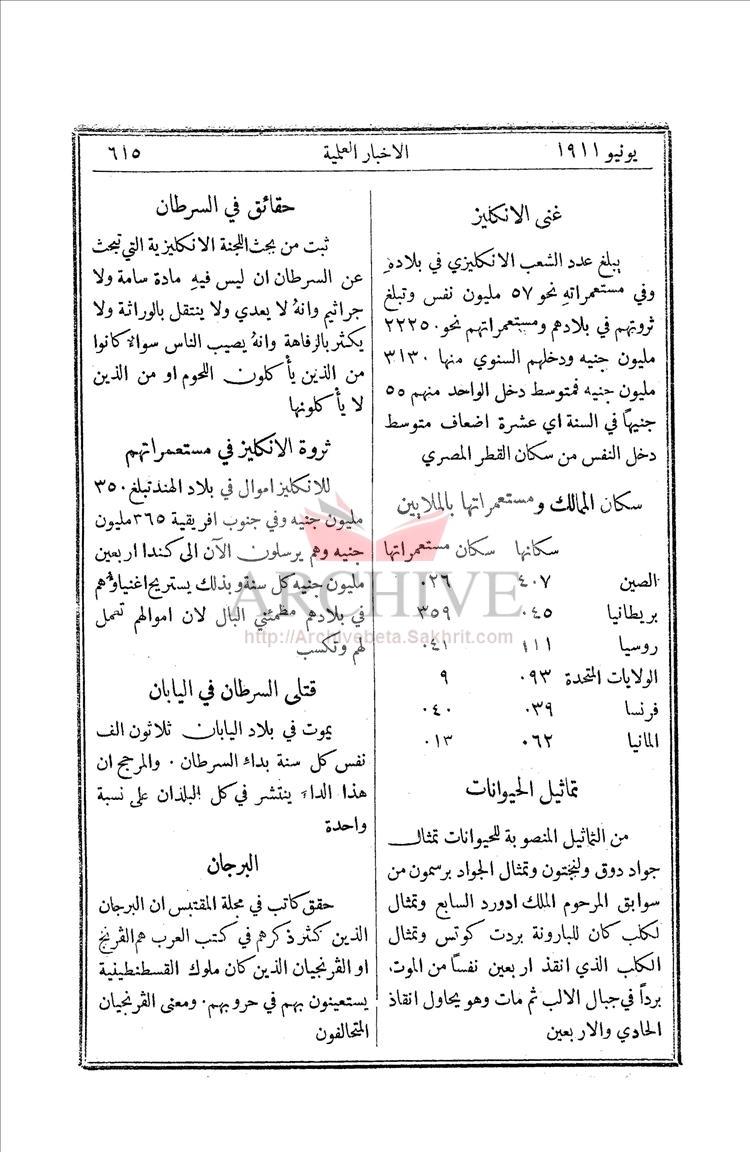 يونيو ١٩١١
الاخبار العلمية
٦١٥
غنى الانكليز
يبلغ عدد الشعب الانكليزي في بلاده
وفي مستعمراته نحو ٥٧ مليون نفس وتبلغ
ثروتهم في بلادهم ومستعمراتهم نحو ٢٢٢٥٠
مليون جنيه ودخلهم السنوي منها ٣١٣٠
مليون جنيه فمتوسط دخل الواحد منهم ٥٥
جنيهًا في السنة اي عشرة اضعاف متوسط
دخل النفس من سكان القطر المصري
سكان الممالك ومستعمراتها بالملايين
سكانها سكان مستعمراتها
الصين ٤٠٧ ٠٢٦
بريطانيا ٠٤٥ ٣٥٩
روسيا ١١١ ٠٤١
الولايات المتحدة ٠٩٣ ٩
فرنسا ٠٣٩ ٠٤٠
المانيا ٠٦٢ ٠١٣
تماثيل الحيوانات
من التماثيل المنصوبة للحيوانات تمثال
جواد دوق ولنجتون وتمثال الجواد برسمون من
سوابق المرحوم الملك ادورد السابع وتمثال
لكلب كان للبارونة بردت كوتس وتمثال
الكلب الذي انقذ اربعين نفسًا من الموت
بردًا في جبال الالب ثم مات وهو يحاول انقاذ
الحادي والاربعين
حقائق في السرطان
ثبت من بحث اللجنة الانكليزية التي تبحث
عن السرطان ان ليس فيه مادة سامة ولا
جراثيم وانهُ لا يعدي ولا ينتقل بالوراثة ولا
يكثر بالرفاهة وانهُ يصيب الناس سواء كانوا
من الذين يأكلون اللحوم او من الذين
لا يأكلونها
ثروة الانكليز في مستعمراتهم
للانكليز اموال في بلاد الهند تبلغ ٣٥٠
مليون جنيه وفي جنوب افريقية ٣٦٥ مليون
جنيه وهم يرسلون الآن الى كندا اربعين
مليون جنيه كل سنة وبذلك يستريح اغنياؤهم
في بلادهم مطمئني البال لان اموالهم تعمل
لهم وتكسب
قتلى السرطان في اليابان
يموت في بلاد اليابان ثلاثون الف
نفس كل سنة بداء السرطان . والمرجح ان
هذا الداء ينتشر في كل البلدان على نسبة
واحدة
البرجان
حقق كاتب في مجلة المقتبس ان البرجان
الذين كثر ذكرهم في كتب العرب هم الڤرنج
او الڤرنجيان الذين كان ملوك القسطنطينية
يستعينون بهم في حروبهم . ومعنى الڤرنجيان
المتحالفون
ARCHIVE
http://Archivebeta.Sakhrit.com